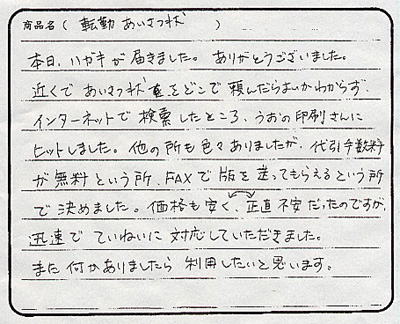 商品名（ 転勤あいさつ状 ）
本日、ハガキが届きました。ありがとうございました。
近くであいさつ状をどこで頼んだらよいかわからず、
インターネットで検索したところ、うおの印刷さんに
ヒットしました。他の所も色々ありましたが、代引手数料
が無料という所、FAXで版を送ってもらえるという所
で決めました。価格も安く、正直不安だったのですが、
迅速でていねいに対応していただきました。
また何かありましたら利用したいと思います。